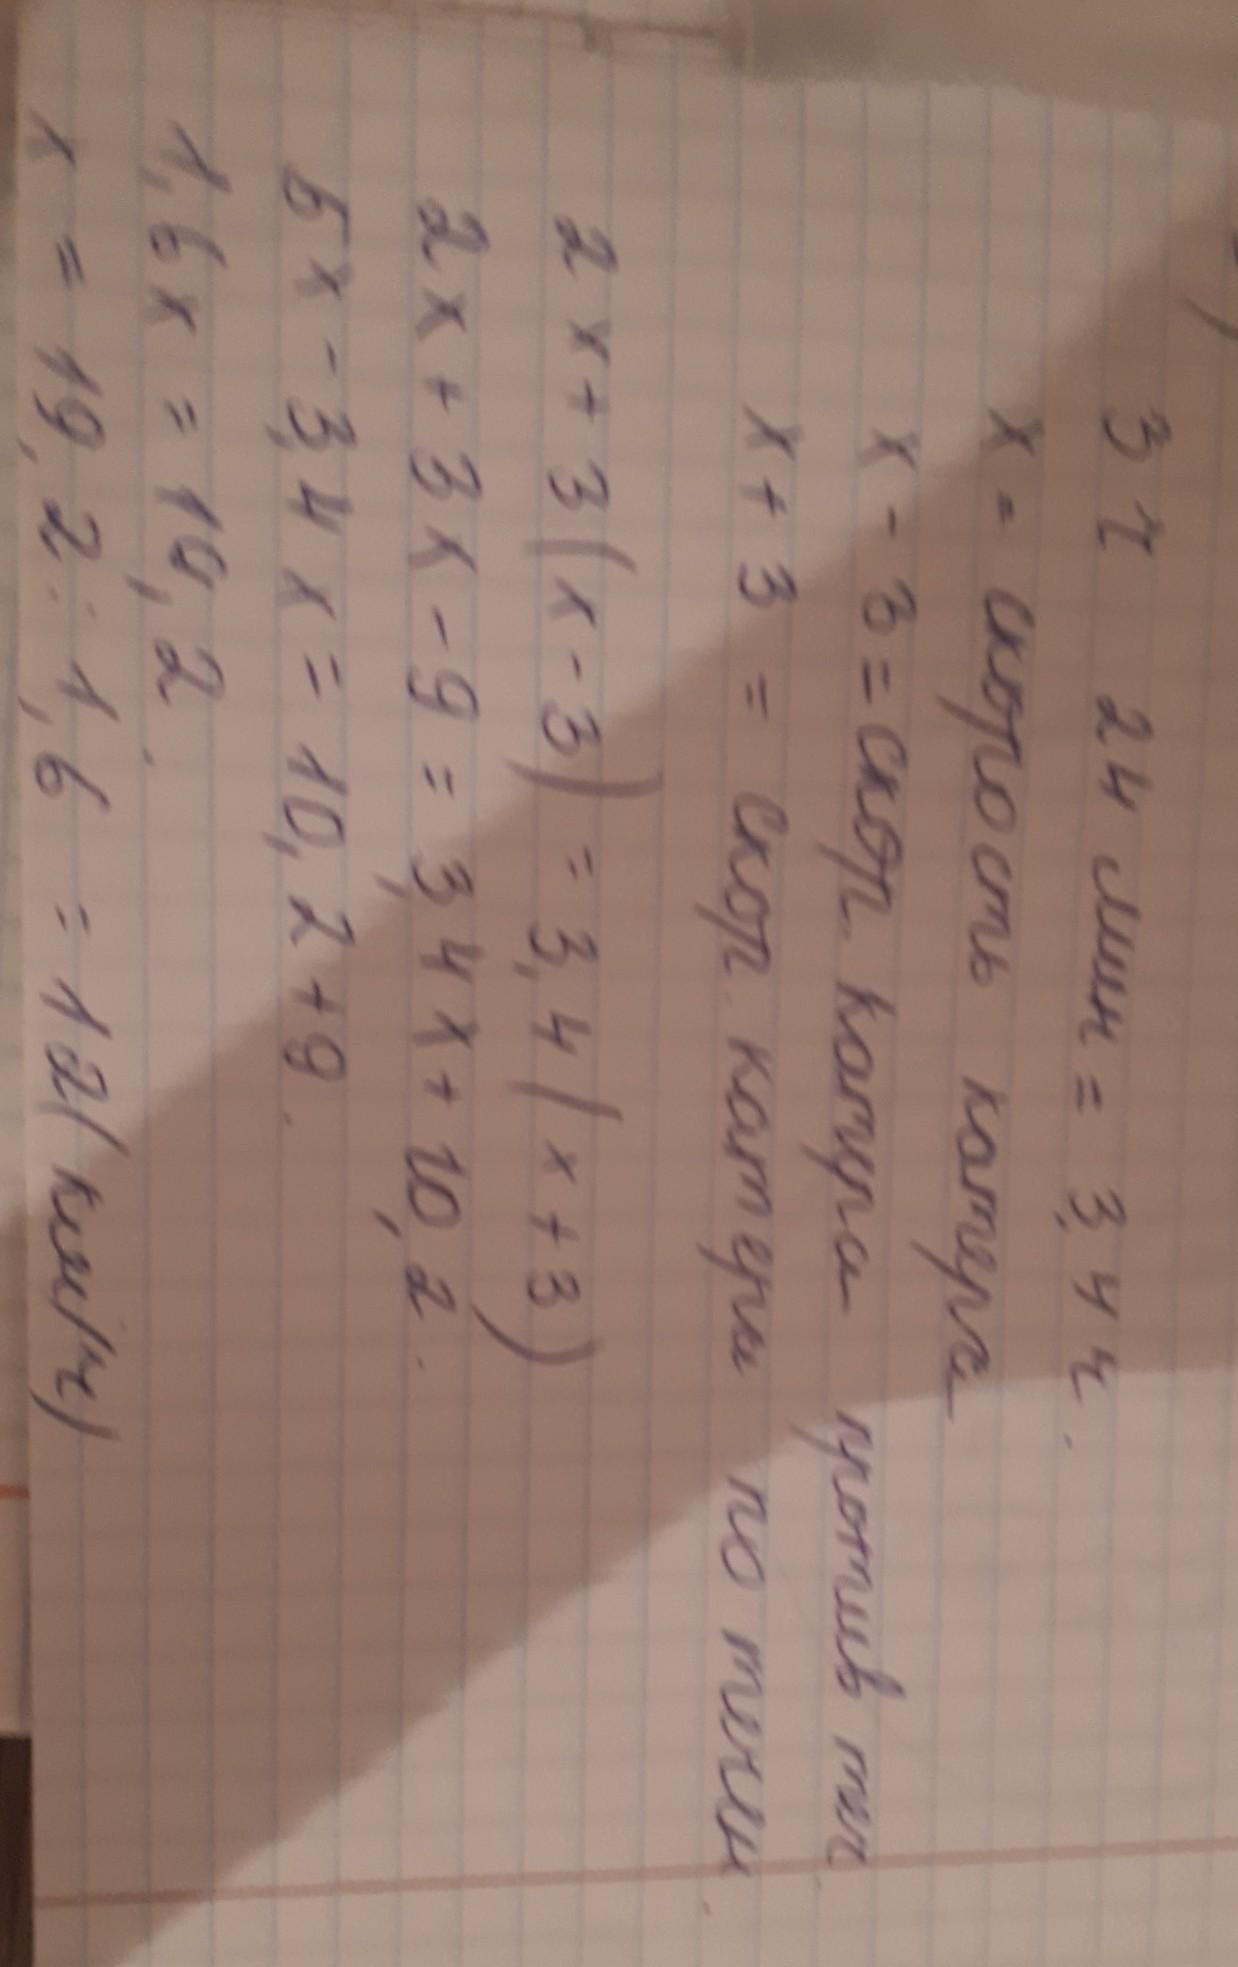 3 ч 24 мин = 3,4 ч.
х - скорость катера
х - 3 = скор. катера против теч.
х + 3 = скор. катера по течен.
2х + 3(х - 3) = 3,4(х + 3)
2х + 3х - 9 = 3,4х + 10,2.
5х - 3,4х = 10,2 + 9.
1,6х = 19,2.
х = 19,2 : 1,6 = 12(км/ч)